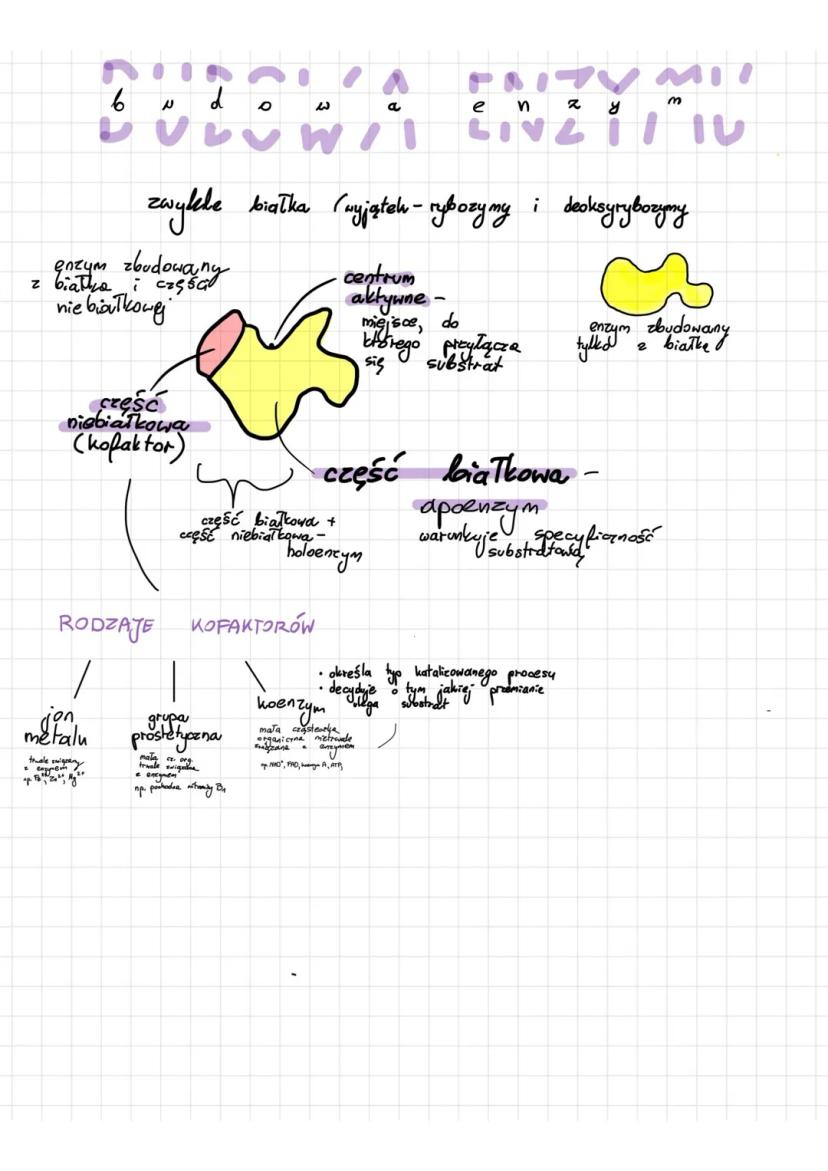 BUDOWA ENZYMU
budowa enzym
zwykle białka (wyjątek - rybozymy i deoksyrybozymy
enzym zbudowany
z białka i części
niebiałkowej
centrum
aktywne -
miejsce, do
którego przyłącza
się substrat
enzym zbudowany
tylko z białka
część
niebiałkowa
(kofaktor)
część białkowa -
apoenzym
warunkuje specyficzność
substratową
część białkowa +
część niebiałkowa -
holoenzym
RODZAJE KOFAKTORÓW
jon
metalu
trwale związany
z enzymem
grupa
prostetyczna
mała cz. org.
trwale związana
z enzymem
np. pochodna witaminy B1
koenzym
mała cząsteczka
organiczna nietrwale
związana z enzymem
np. NAD+, FAD, A, ATP,
• określa typ katalizowanego procesu
• decyduje o tym jakiej przemianie
ulega substrat